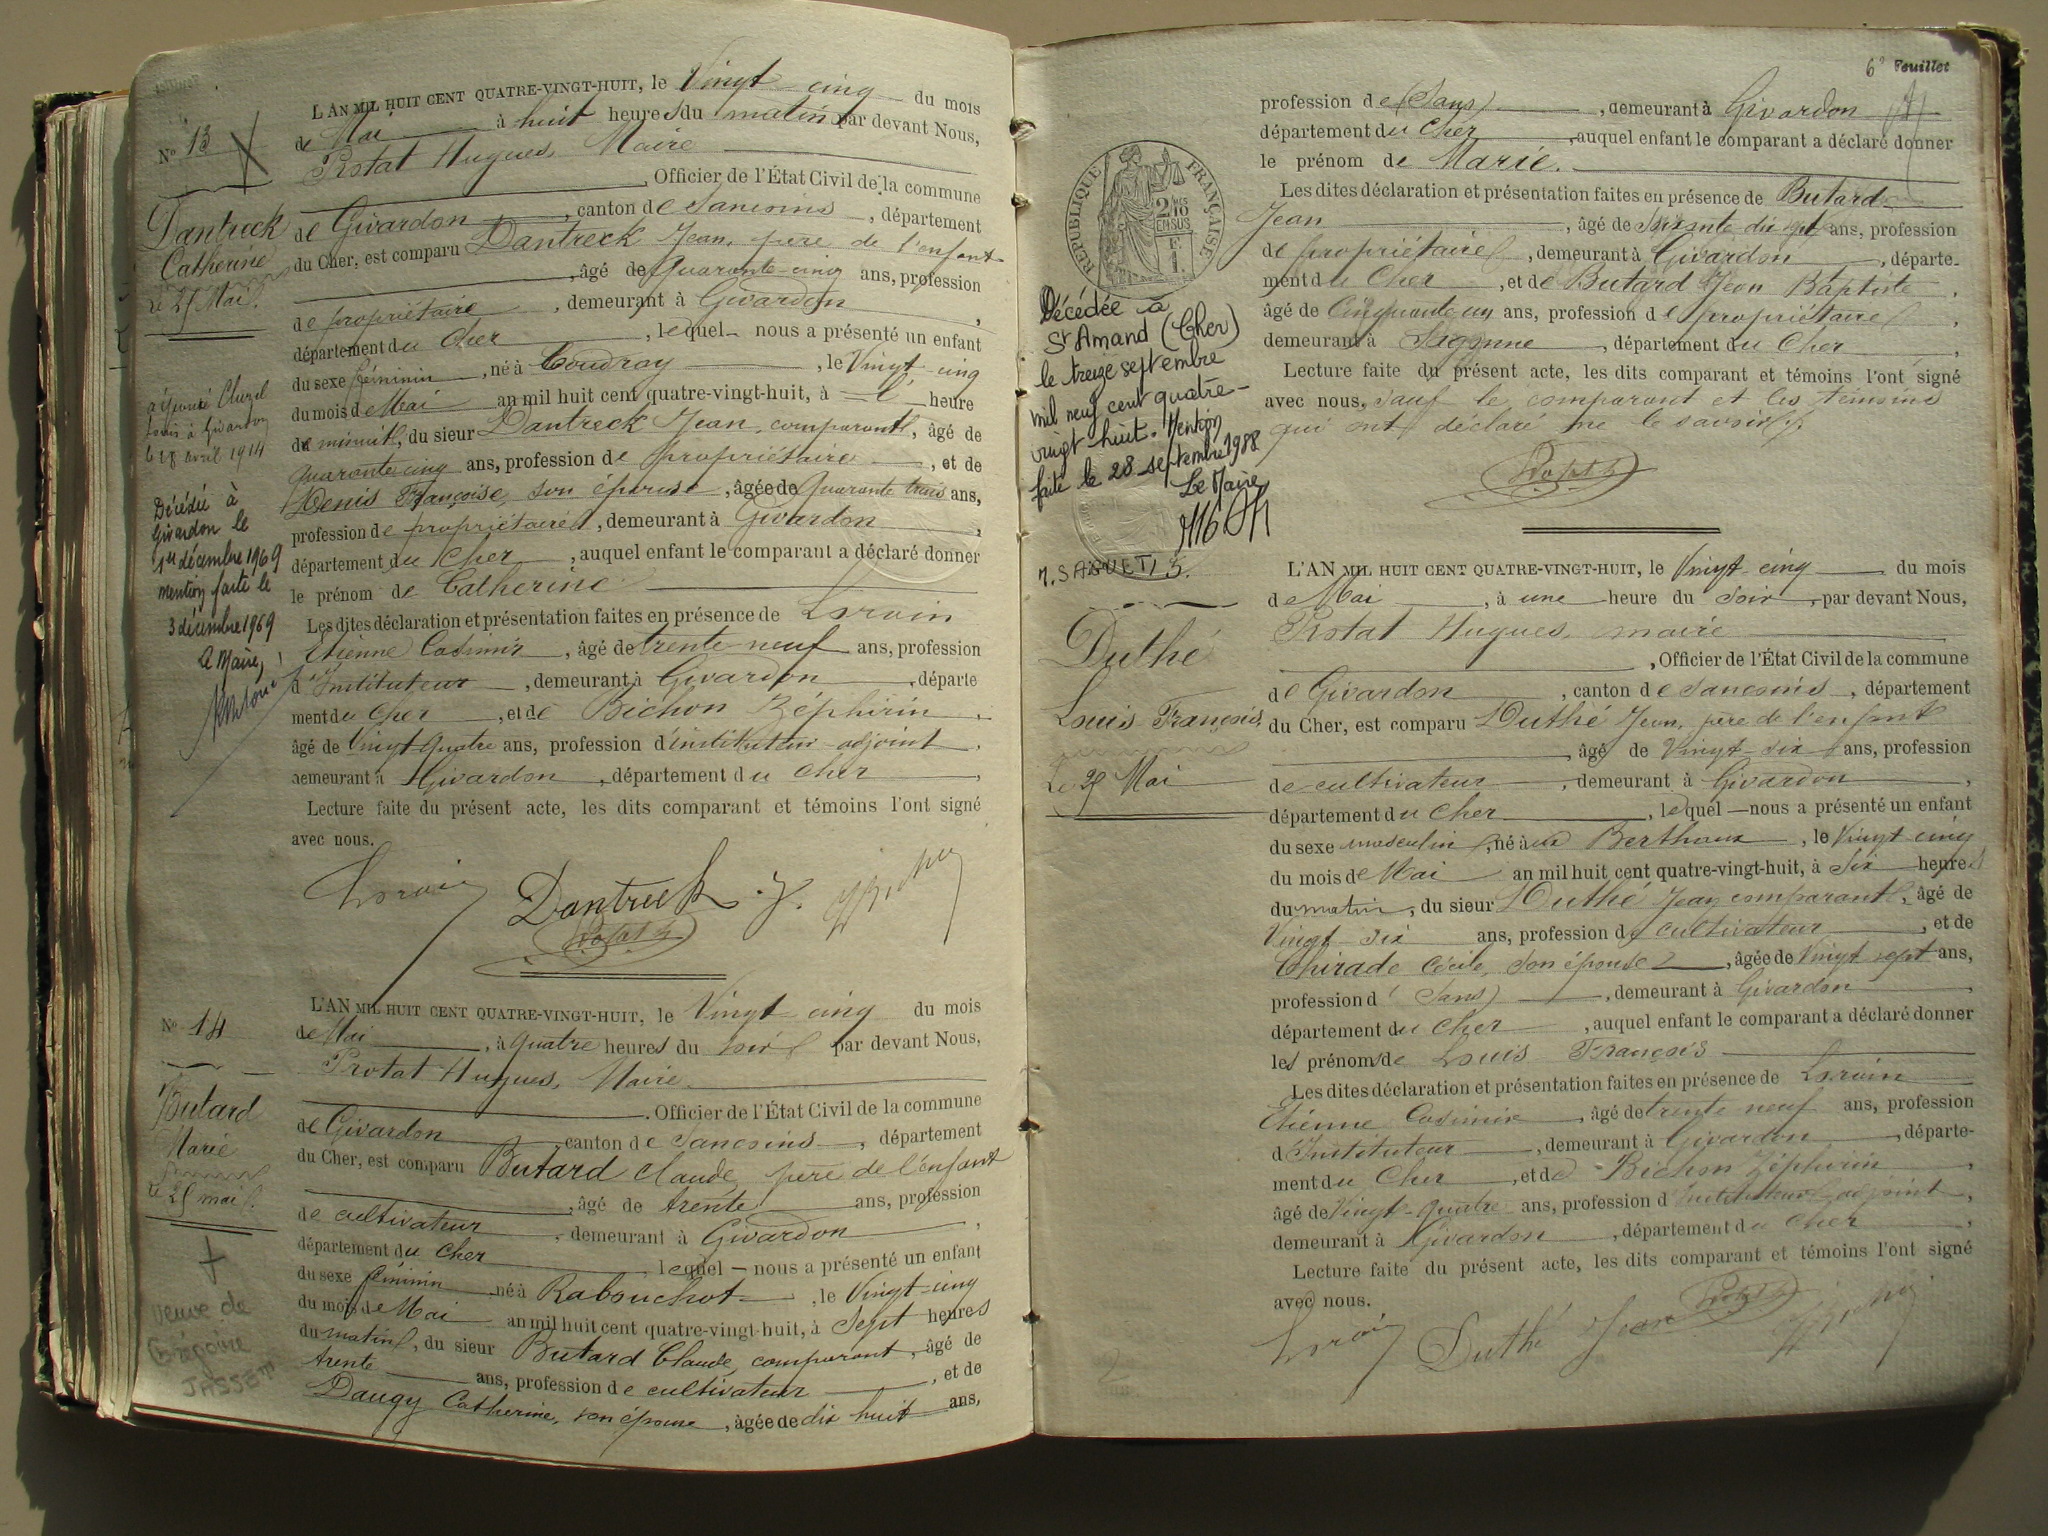 Nº 13
Dantreck
Catherine
le 25 Mai.
Louis à Givardon
le 18 avril 1914
Décédée à
Givardon le
1er décembre 1969
mention faite le
3 décembre 1969
Le Maire,
L'AN MIL HUIT CENT QUATRE-VINGT-HUIT, le Vingt cinq du mois
de Mai à huit heures du matin par devant Nous,
Protat Hugues, Maire
, Officier de l'État Civil de la commune
de Givardon, canton de Sancoins, département
du Cher, est comparu Dantreck Jean, père de l'enfant
, âgé de Quarante-cinq ans, profession
de propriétaire, demeurant à Givardon,
département du Cher, lequel nous a présenté un enfant
du sexe féminin, né à Coudray, le Vingt cinq
du mois de Mai an mil huit cent quatre-vingt-huit, à heure
de minuit, du sieur Dantreck Jean, comparant, âgé de
Quarante cinq ans, profession de propriétaire, et de
Denis Françoise, son épouse, âgée de Quarante trois ans,
profession de propriétaire, demeurant à Givardon,
département du Cher, auquel enfant le comparant a déclaré donner
le prénom de Catherine
Les dites déclaration et présentation faites en présence de Lorvin
Etienne Casimir, âgé de trente neuf ans, profession
d'Instituteur, demeurant à Givardon, départe
ment du Cher, et de Bichon Zéphirin,
âgé de Vingt Quatre ans, profession d'instituteur-adjoint,
demeurant à Givardon, département du Cher,
Lecture faite du présent acte, les dits comparant et témoins l'ont signé
avec nous.
Dantreck J.
Protat h
Nº 14
Butard
Marie
le 25 mai
veuve de
Grégoire
L'AN MIL HUIT CENT QUATRE-VINGT-HUIT, le Vingt cinq du mois
de Mai, à quatre heures du soir par devant Nous,
Protat Hugues, Maire
. Officier de l'État Civil de la commune
de Givardon, canton de Sancoins, département
du Cher, est comparu Butard Claude, père de l'enfant
, âgé de trente ans, profession
de cultivateur, demeurant à Givardon,
département du Cher, lequel — nous a présenté un enfant
du sexe féminin, né à Rabouchot, le Vingt-cinq
du mois de Mai an mil huit cent quatre-vingt-huit, à Sept heures
du matin, du sieur Butard Claude, comparant, âgé de
trente ans, profession de cultivateur, et de
Daugy Catherine, son épouse, âgée de dix huit ans,
6e Feuillet
profession de (Sans), demeurant à Givardon
département du Cher, auquel enfant le comparant a déclaré donner
le prénom de Marie.
Les dites déclaration et présentation faites en présence de Butard
Jean, âgé de Soixante dix ans, profession
de propriétaire, demeurant à Givardon, départe-
ment du Cher, et de Butard Jean Baptiste,
âgé de Cinquante un ans, profession de propriétaire,
demeurant à Sagonne, département du Cher,
Lecture faite du présent acte, les dits comparant et témoins l'ont signé
avec nous, sauf le comparant et les témoins
qui ont déclaré ne le savoir.
Protat h
RÉPUBLIQUE FRANÇAISE
2/10
EN SUS
Décédée à
St Amand (Cher)
le treize septembre
mil neuf cent quatre-
vingt huit. Mention
faite le 28 septembre 1988
Le Maire,
Duthé
Louis François
Le 25 Mai
L'AN MIL HUIT CENT QUATRE-VINGT-HUIT, le Vingt cinq du mois
de Mai, à une heure du Soir, par devant Nous,
Protat Hugues, maire
, Officier de l'État Civil de la commune
de Givardon, canton de Sancoins, département
du Cher, est comparu Duthé Jean, père de l'enfant
, âgé de Vingt-six ans, profession
de cultivateur, demeurant à Givardon,
département du Cher, lequel — nous a présenté un enfant
du sexe masculin, né aux Berthaux, le Vingt cinq
du mois de Mai an mil huit cent quatre-vingt-huit, à Six heures
du matin, du sieur Duthé Jean comparant, âgé de
Vingt six ans, profession de cultivateur, et de
Chirade Cécile, son épouse, âgée de Vingt sept ans,
profession d (Sans), demeurant à Givardon,
département du Cher, auquel enfant le comparant a déclaré donner
les prénoms de Louis François
Les dites déclaration et présentation faites en présence de Lorvin
Etienne Casimir, âgé de trente neuf ans, profession
d'Instituteur, demeurant à Givardon, départe-
ment du Cher, et de Bichon Zéphirin,
âgé de Vingt-Quatre ans, profession d'instituteur adjoint,
demeurant à Givardon, département du Cher,
Lecture faite du présent acte, les dits comparant et témoins l'ont signé
avec nous.
Duthé Jean
Protat h